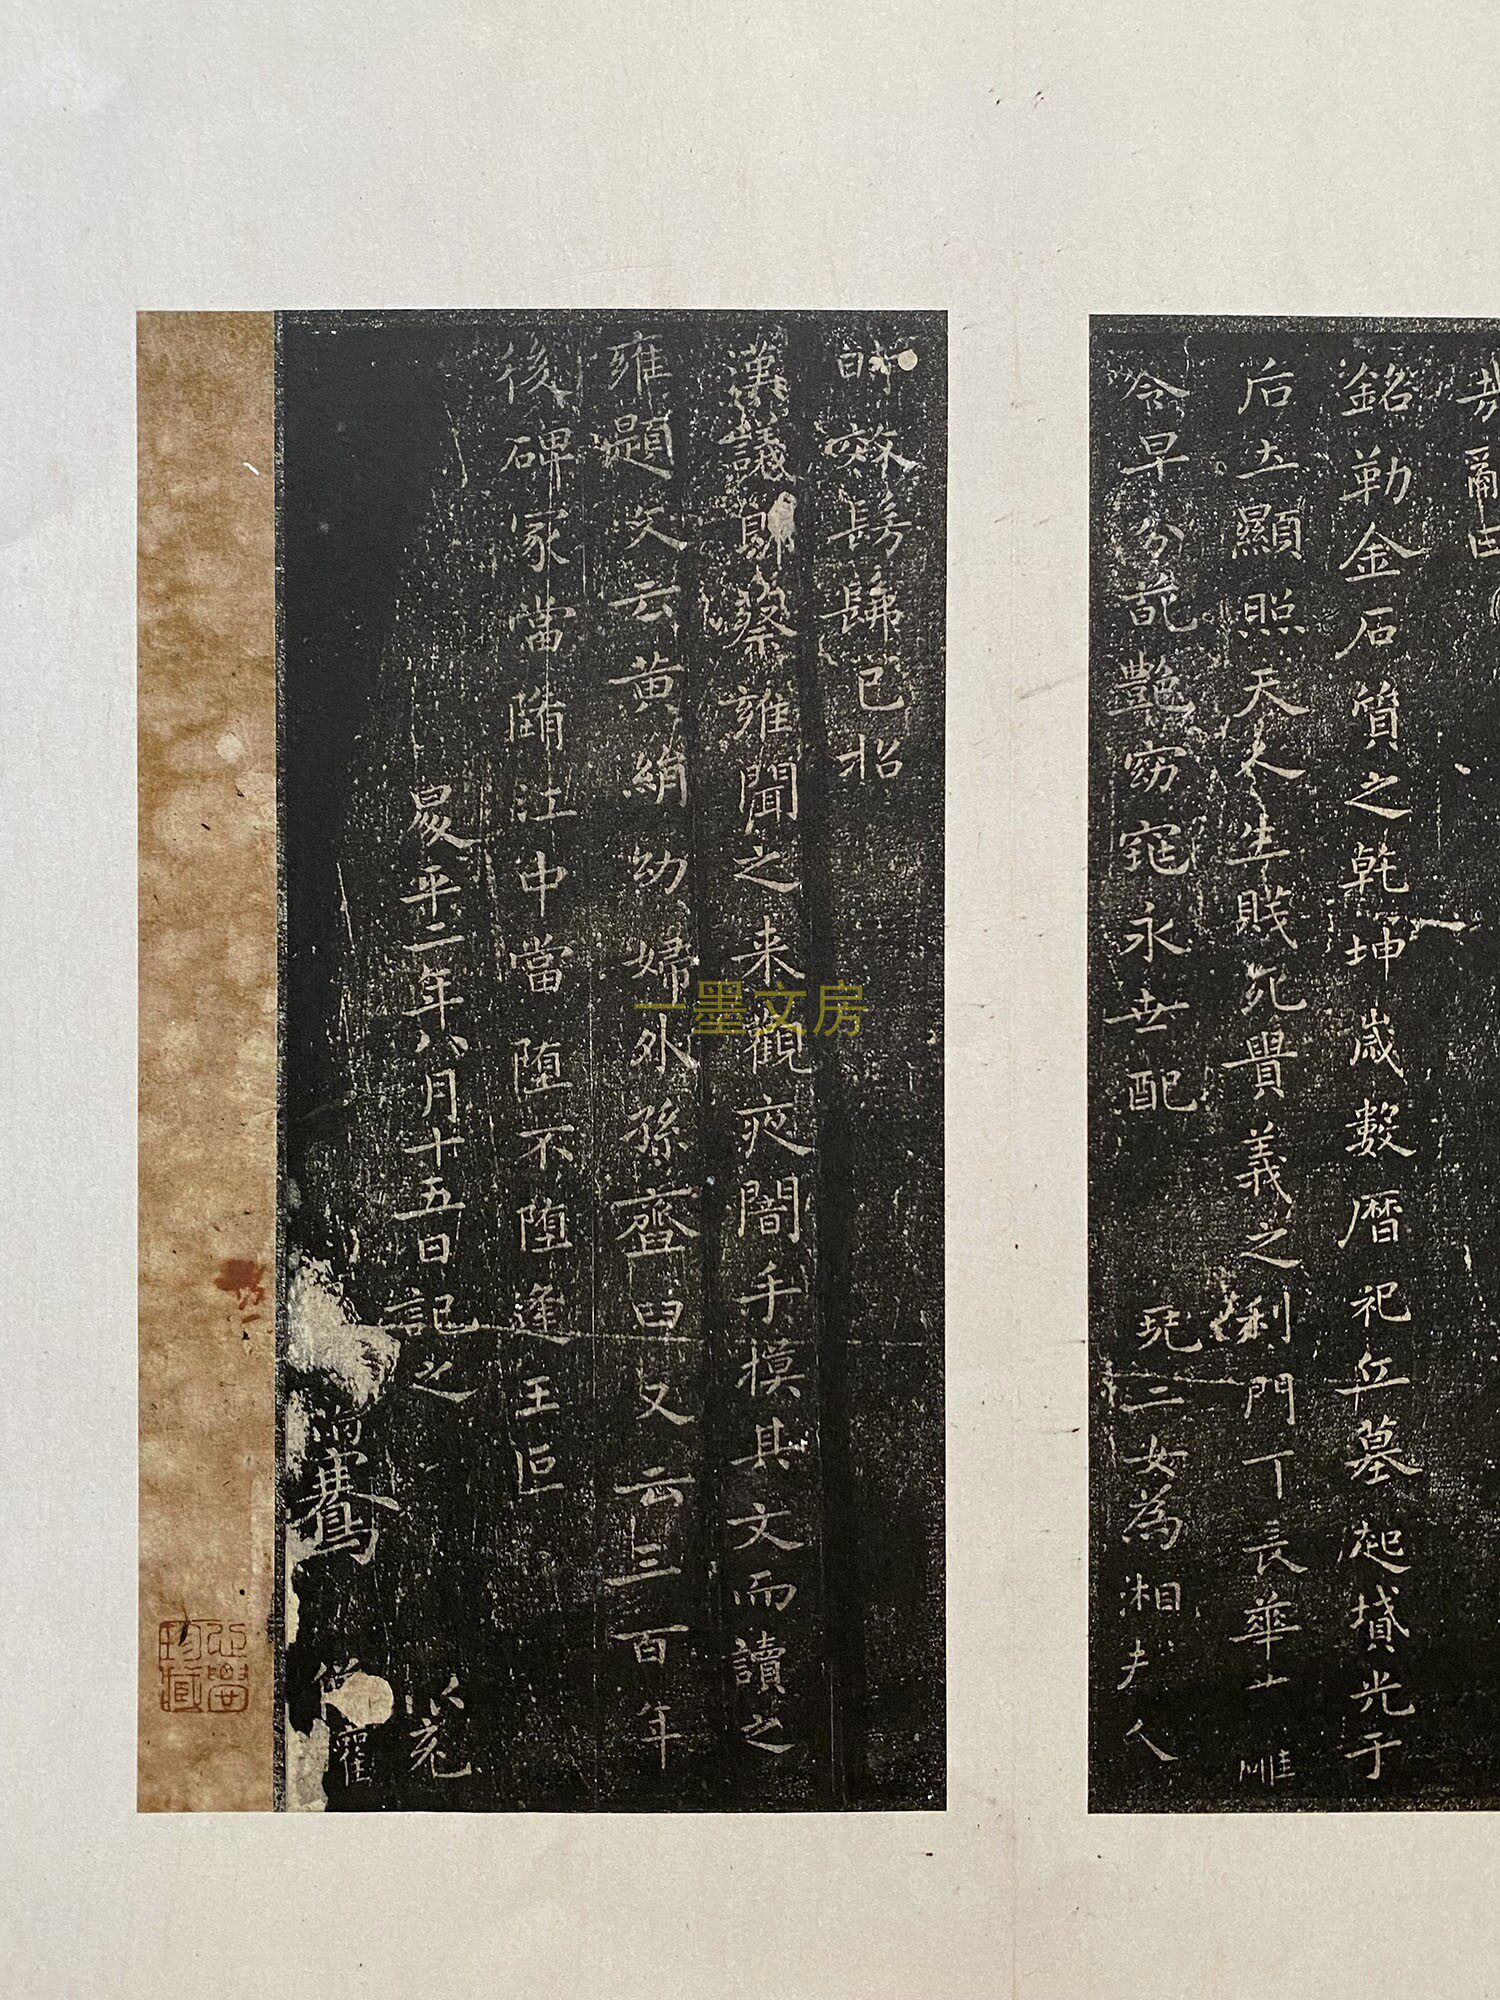 銘勒金石質之乾坤歲數曆祀丘墓起墳光于
后土顯照天人生賤死貴義之利門丁長華 雕
令早分葩艷窈窕永世配 堯二女為湘夫人
時效髣髴已招
漢議郎蔡雍聞之来觀夜闇手摸其文而讀之
雍題文云黄絹幼婦外孫齏臼又云三百年
後碑冢當墮江中當墮不墮逢王叵
昇平二年八月十五日記之
滿騫
僧 權
一墨文房
珍藏